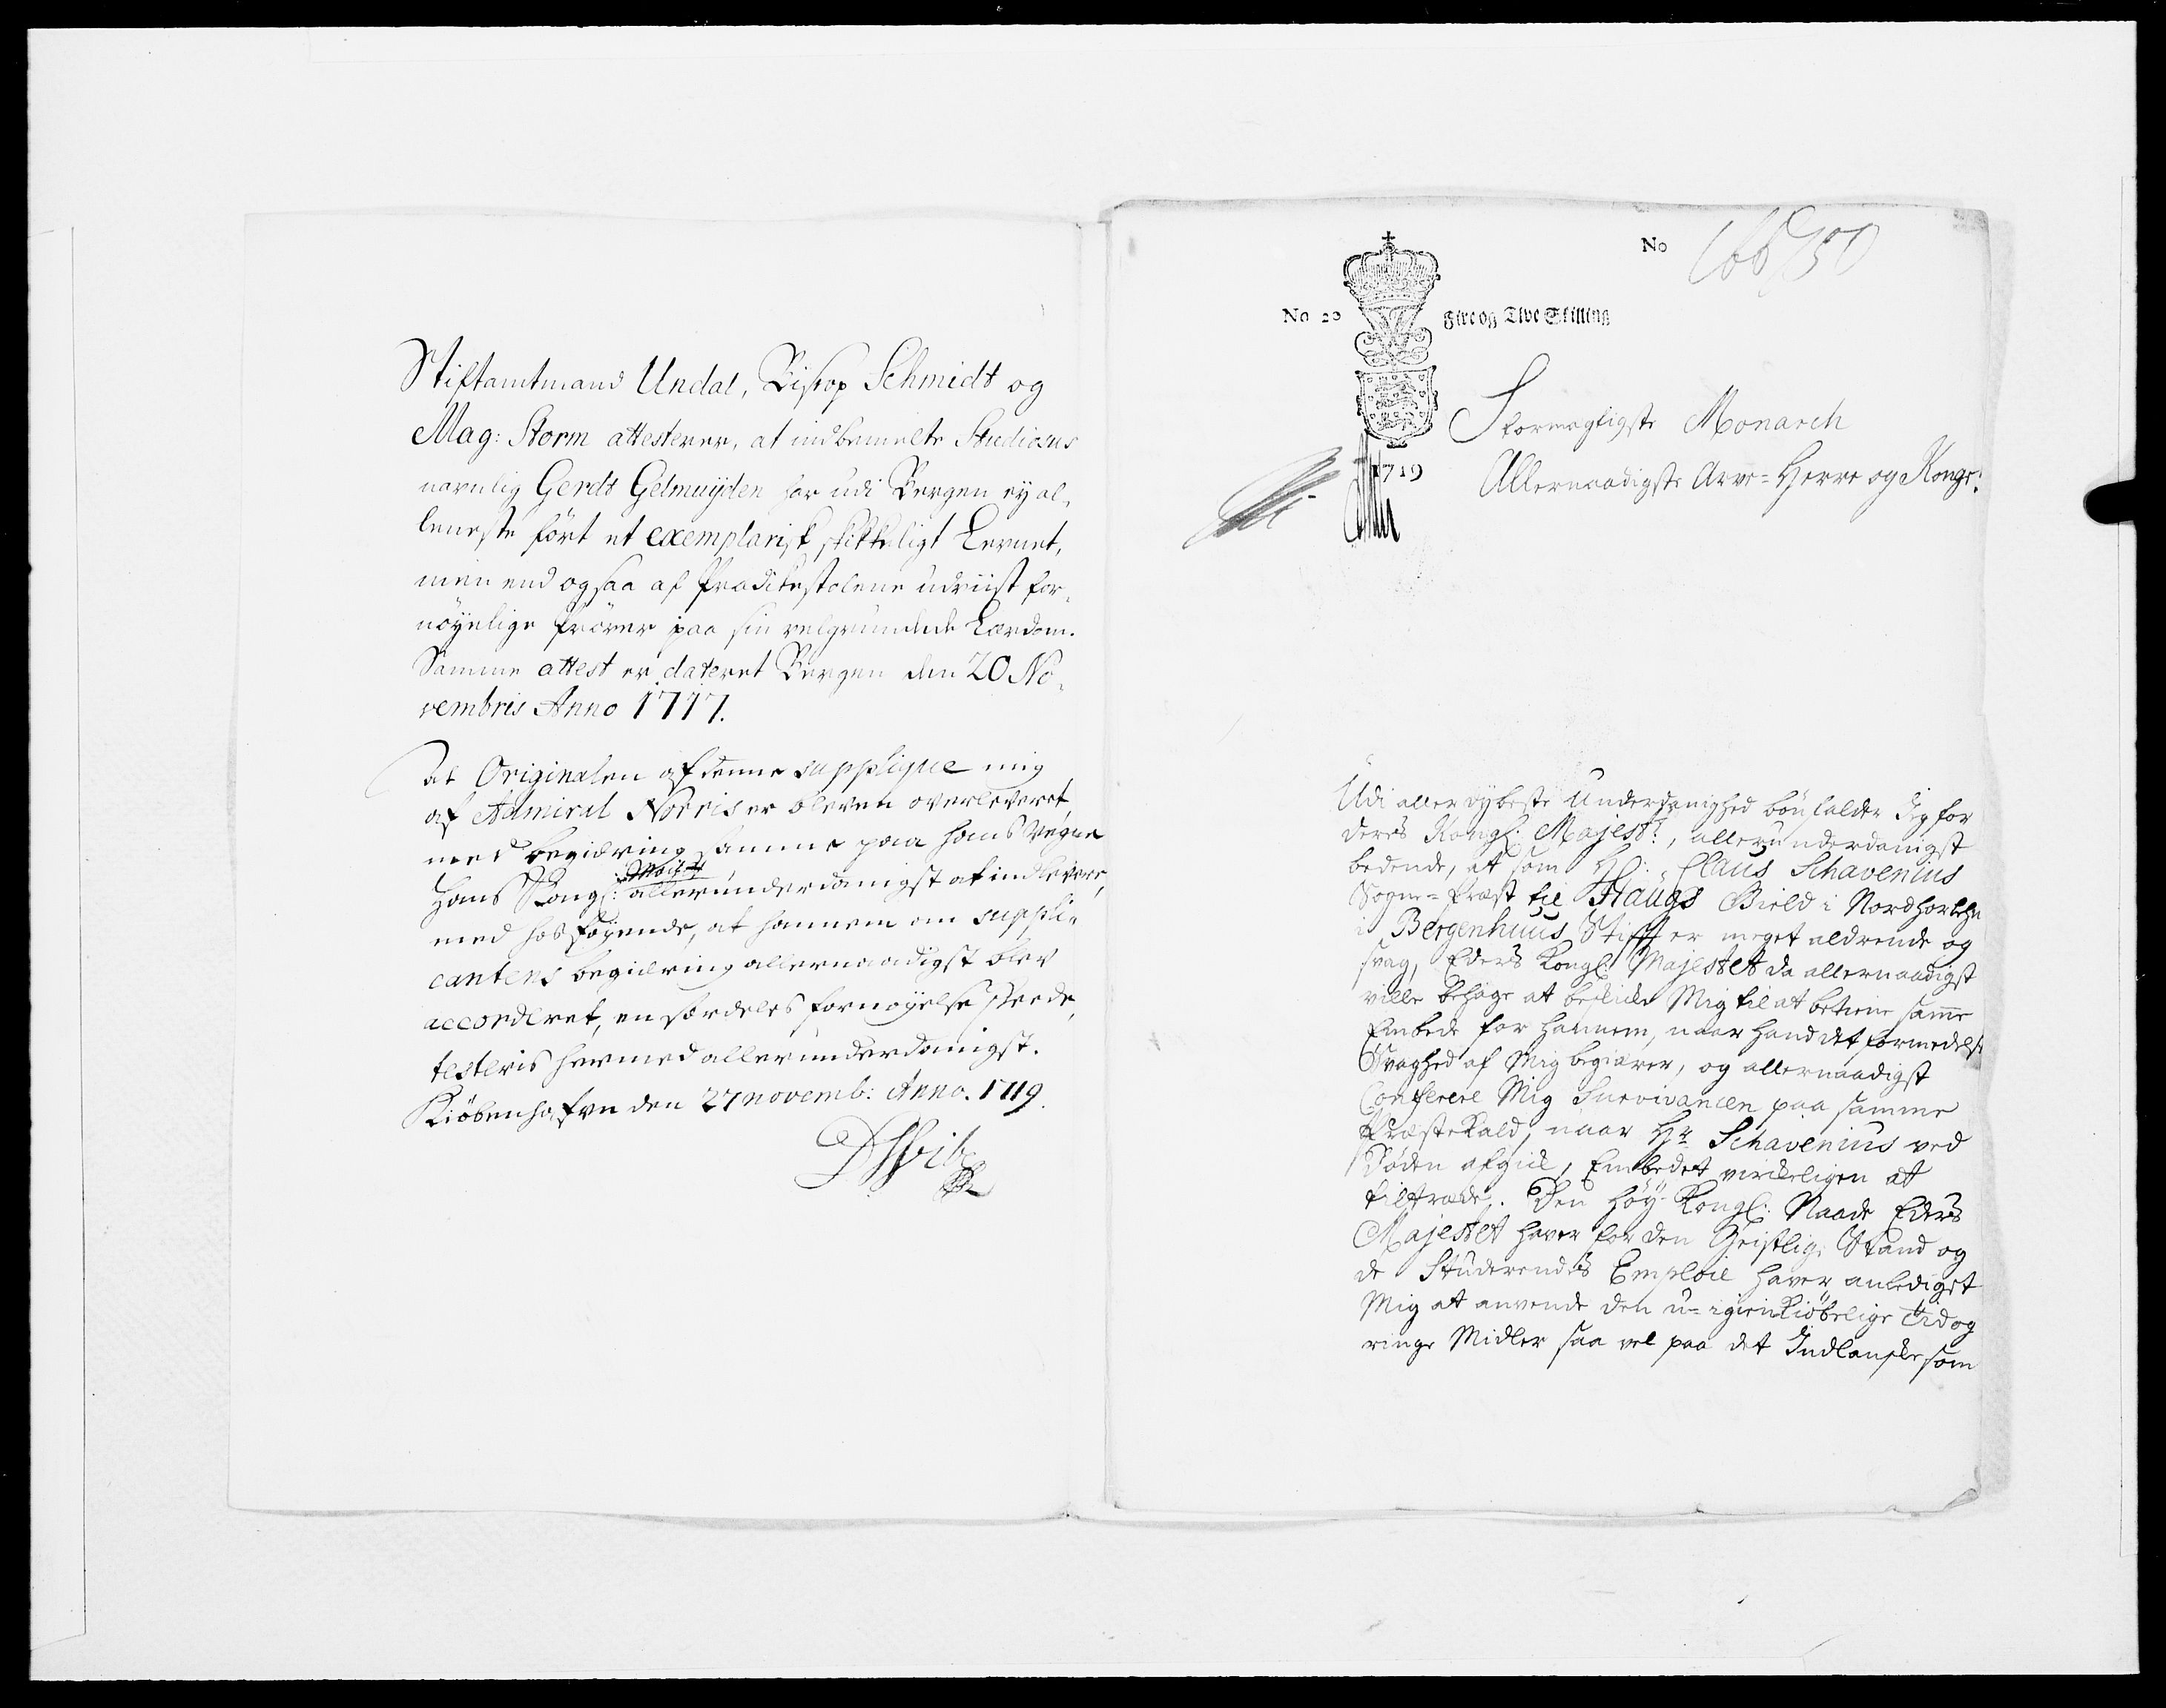 Stiftamtmand Undal, Biskop Schmidt og
Mag: Storm attesterer, at indbemelte Studiosus
navnlig Gerdt Gelmuyden har udi Bergen ey al-
leneste ført et exemplarisk skikkeligt Levnet,
men end ogsaa af Prædikestolene udviist for-
nøyelige Prøver paa sin velgrundede Lærdom.
Samme attest er dateret Bergen den 20 No-
vembris Anno 1717.
At Originalen af denne supplique mig
af Admiral Norris er bleven overleveret
med begiæring samme paa hans Vegne
Hans Kongl: Mayst allerunderdanigst at indlevere,
med hosføyende, at hannem om suppli-
cantens begiæring allernaadigst blev
accorderet, en særdeles fornøyelse skeede,
testeris hermed allerunderdanigst.
Kiöbenhafvn den 27 novemb: Anno. 1719.
No 20
Fire og Tive Skilling
No
1719
Stormægtigste Monarch
Allernaadigste Arve-Herre og Konge!
Udi allerdybeste Underdanighed bönfalder Jeg for
deres Kongl: Majest:, allerunderdanigst
bedende, at som Hr: Claus Schavenius
Sogne-Præst til Haugs Gield i Nordhorlehn
i Bergenhuus Stifft er meget aldrende og
svag, Eders Kongl: Majestet da allernaadigst
ville behage at beskicke Mig til at betiene samme
Embede for hannem, naar hand det formedelst
Svaghed af Mig begiærer, og allernaadigst
Conferere Mig Survivancen paa samme
Præstekald, naar Hr Schavenius ved
Döden afgick, Embedet virckeligen at
tiltræde. Den höy-Kongl: Naade Eders
Majestet haver for den Geistlige Stand og
de Studerendes Emploie haver anlediget
Mig at anvende den u-igienkiöbelige tid og
ringe Midler saa vel paa det Indlandske som